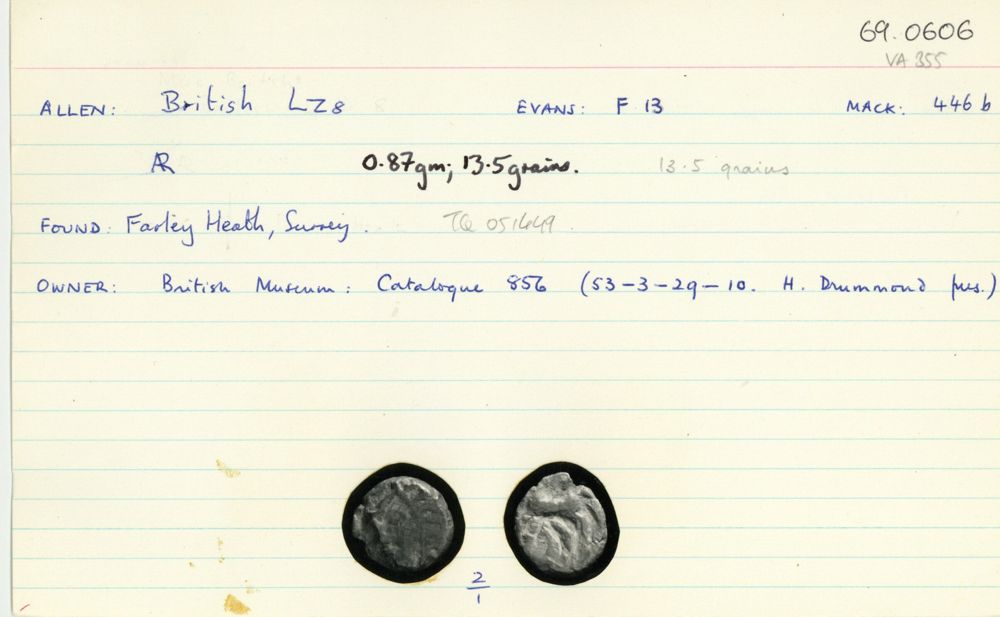 69.0606
VA 355
ALLEN: British LZ8 EVANS: F 13 MACK: 446 b
AR 0.87gm; 13.5grains. 13.5 grains
FOUND: Farley Heath, Surrey. TQ 051449.
OWNER: British Museum: Catalogue 856 (53-3-29-10. H. Drummond pres.)
2
1